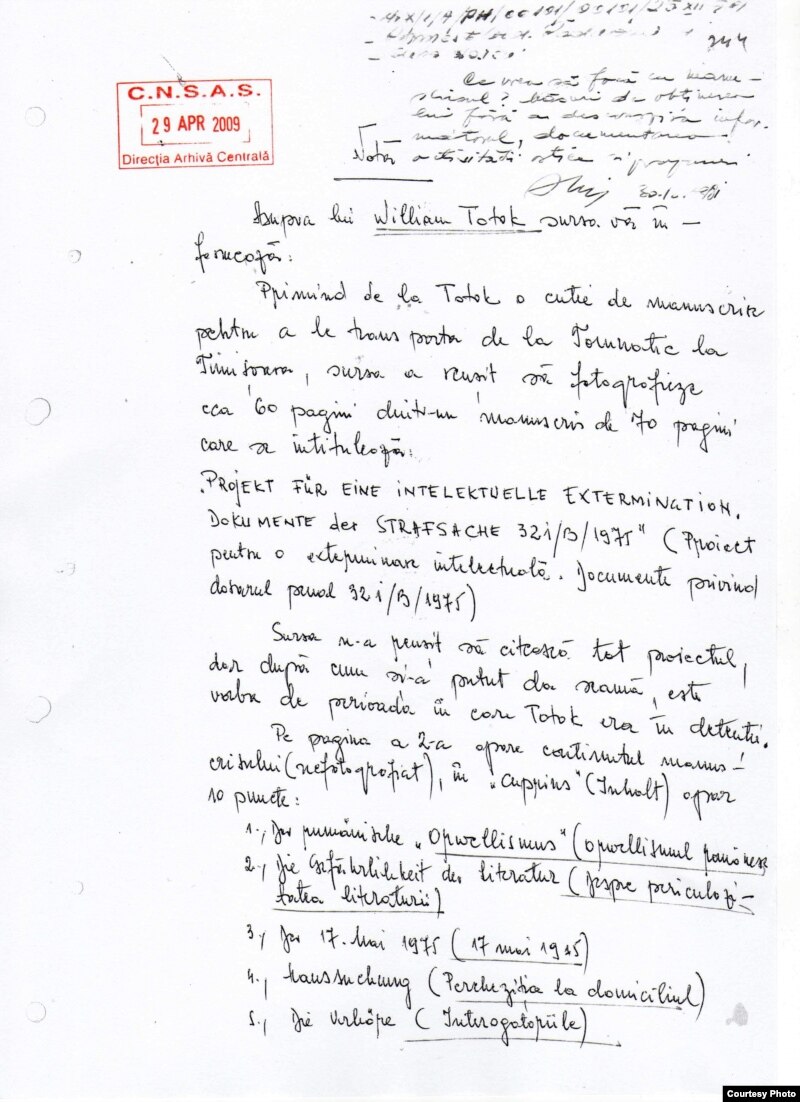 244
C.N.S.A.S.
29 APR 2009
Direcția Arhivă Centrală
Ce vrea să facă cu manu-
scrisul? Măsuri de obținerea
lui fără a desconspira infor-
matorul, documentarea
activității ostile
Notă
Asupra lui William Totok sursa vă in-
formează:
Primind de la Totok o cutie de manuscrise
pentru a le transporta de la Tomnatic la
Timișoara, sursa a reușit să fotografieze
cca 60 pagini dintr-un manuscris de 70 pagini
care se intitulează:
"PROJEKT FÜR EINE INTELEKTUELLE EXTERMINATION.
DOKUMENTE der STRAFSACHE 321/B/1975" (Proiect
pentru o exterminare intelectuală. Documente privind
dosarul penal 321/B/1975)
Sursa n-a reușit să citească tot proiectul,
dar după cum și-a putut da seama, este
vorba de perioada în care Totok era în detenție.
Pe pagina a 2-a apare conținutul manus-
crisului (nefotografiat), în "Cuprins" (Inhalt) apar
10 puncte:
1., Der rumänische "Orwellismus" (orwellismul românesc
2., Die Gefährlichkeit der literatur (Despre periculozi-
tatea literaturii)
3., Der 17. Mai 1975 (17 mai 1975)
4., Haussuchung (Percheziția la domiciliul)
5., Die Verhöre (Interogatoriile)
Courtesy Photo